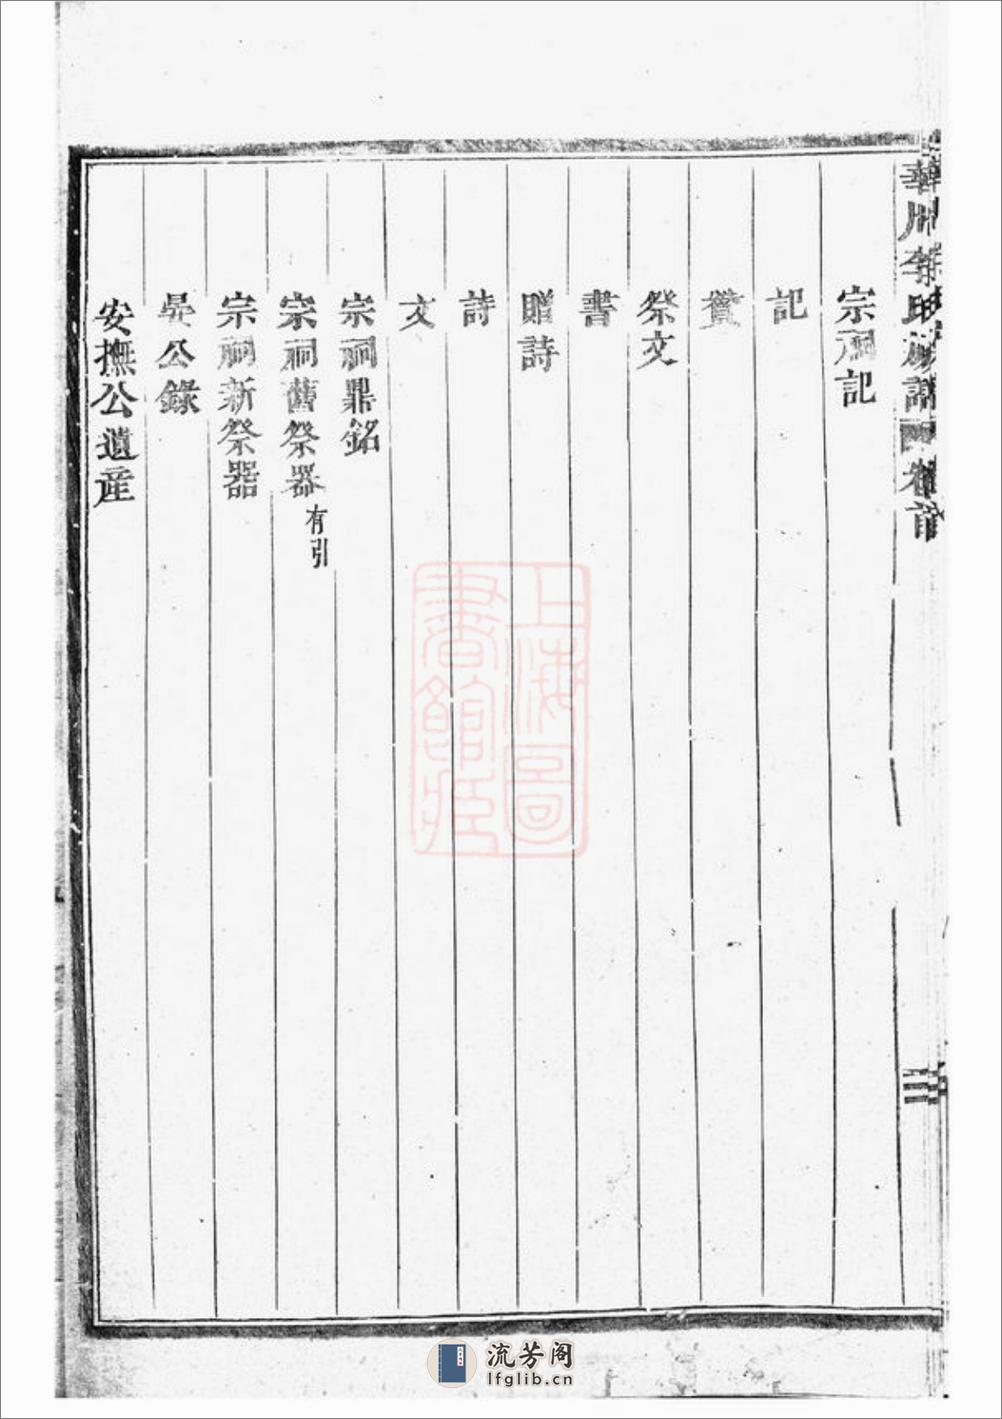 宗祠記
記
贊
祭文
書
贈詩
詩
文
宗祠鼎銘
宗祠舊祭器有引
宗祠新祭器
晏公錄
安撫公遺産
上海圖書館藏
流芳阁
lfglib.cn